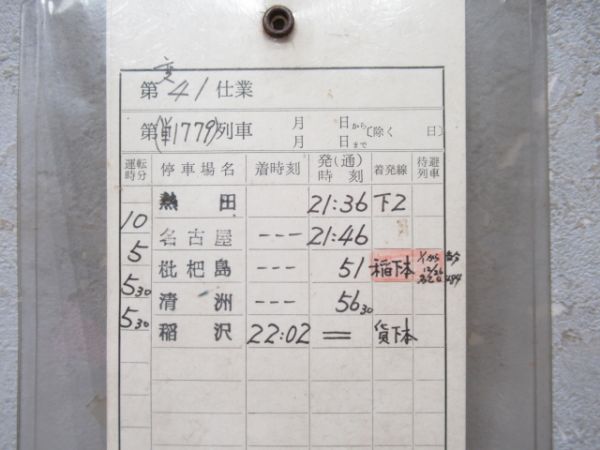 変
第41仕業
第(単1779)列車 月 日から 月 日まで (除く 日)
運転時分 停車場名 着時刻 発(通)時刻 着発線 待避列車
熱田 21:36 下2
10
名古屋 --- 21:46
5
枇杷島 --- 51 稲下本
5 30
清洲 --- 56 30
5 30
稲沢 22:02 = 貨下本